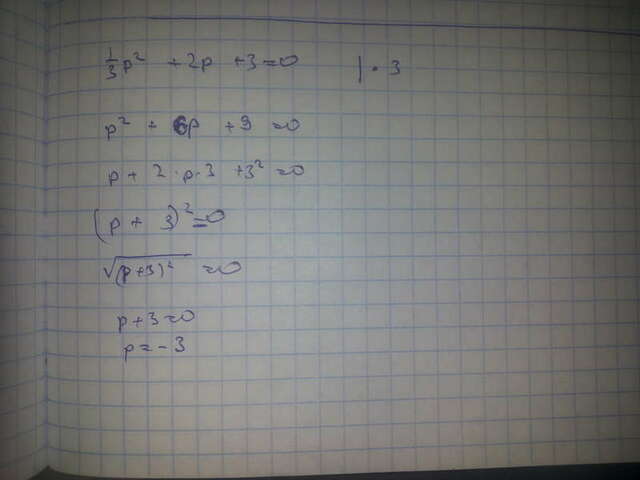 1/3 p² + 2p + 3 = 0 | · 3
p² + 6p + 9 = 0
p + 2 · p · 3 + 3² = 0
(p + 3)² = 0
√(p+3)² = 0
p + 3 = 0
p = - 3